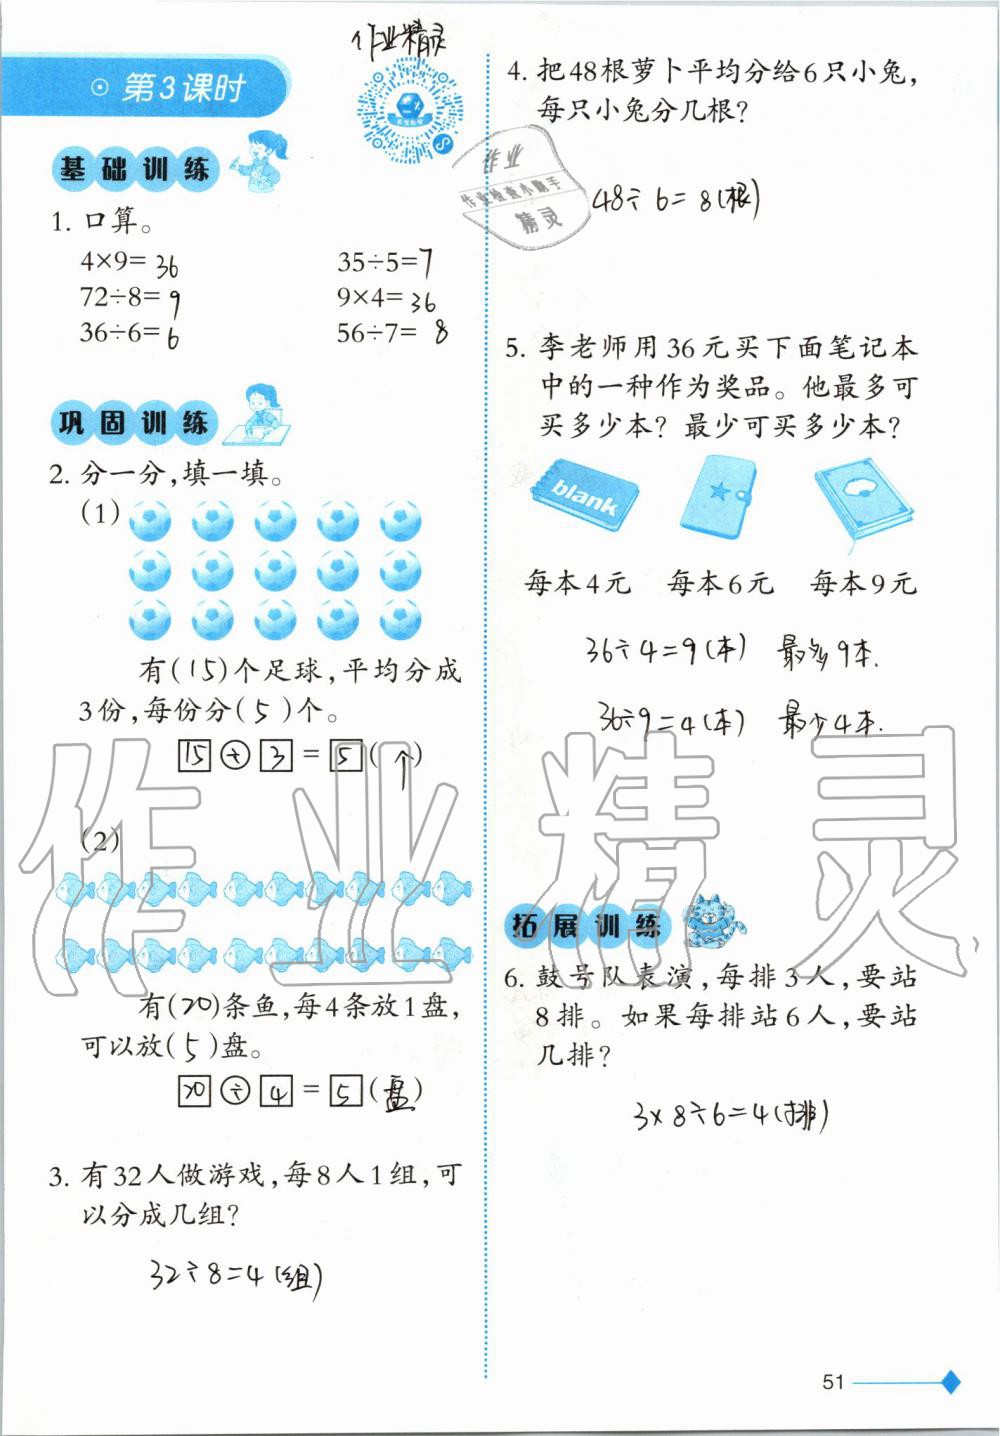 作业精灵
第3课时
基础训练
1. 口算。
4×9=36 35÷5=7
72÷8=9 9×4=36
36÷6=6 56÷7=8
巩固训练
2. 分一分,填一填。
(1)
有(15)个足球,平均分成
3份,每份分(5)个。
15÷3=5(个)
(2)
有(20)条鱼,每4条放1盘,
可以放(5)盘。
20÷4=5(盘)
3. 有32人做游戏,每8人1组,可
以分成几组?
32÷8=4(组)
4. 把48根萝卜平均分给6只小兔,
每只小兔分几根?
48÷6=8(根)
作业
作业检查小助手
精灵
5. 李老师用36元买下面笔记本
中的一种作为奖品。他最多可
买多少本? 最少可买多少本?
blank
每本4元 每本6元 每本9元
36÷4=9(本) 最多9本.
36÷9=4(本) 最少4本.
作业精灵
拓展训练
6. 鼓号队表演,每排3人,要站
8排。如果每排站6人,要站
几排?
3×8÷6=4(排)
51